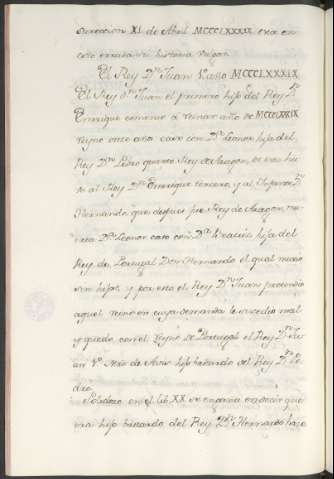 Duracion XI de Abril MCCCLXXXIX era en
esto errada su historia vulgar.
El Rey D.n Juan Passo MCCCLXXXIX
El Rey D.n Juan el primero hijo del Rey D.n
Enrrique comenzo a reinar año de MCCCLXXIX
reyno once años caso con D.a Leonor hija del
Rey D.n Pedro quarto Rey de Aragon, de esta hu
bo al Rey D.n Enrrique tercero, y al Infante D.n
Hernando que despues fue Rey de Aragon, mu
erta D.a Leonor caso con D.a Beatriz hija del
Rey de Portugal Don Hernando el qual murio
sin hijos, y por esto el Rey D.n Juan pretendio
aquel reino en cuya demanda le sucedio mal
y quedo con el Reyno de Portugal el Rey D.n Ju
an V.o Mrô de Avis hijo bastardo del Rey D.n Pe
dro.
en el lib. XX se engaña en decir que
era hijo bastardo del Rey D.n Hernando hijo